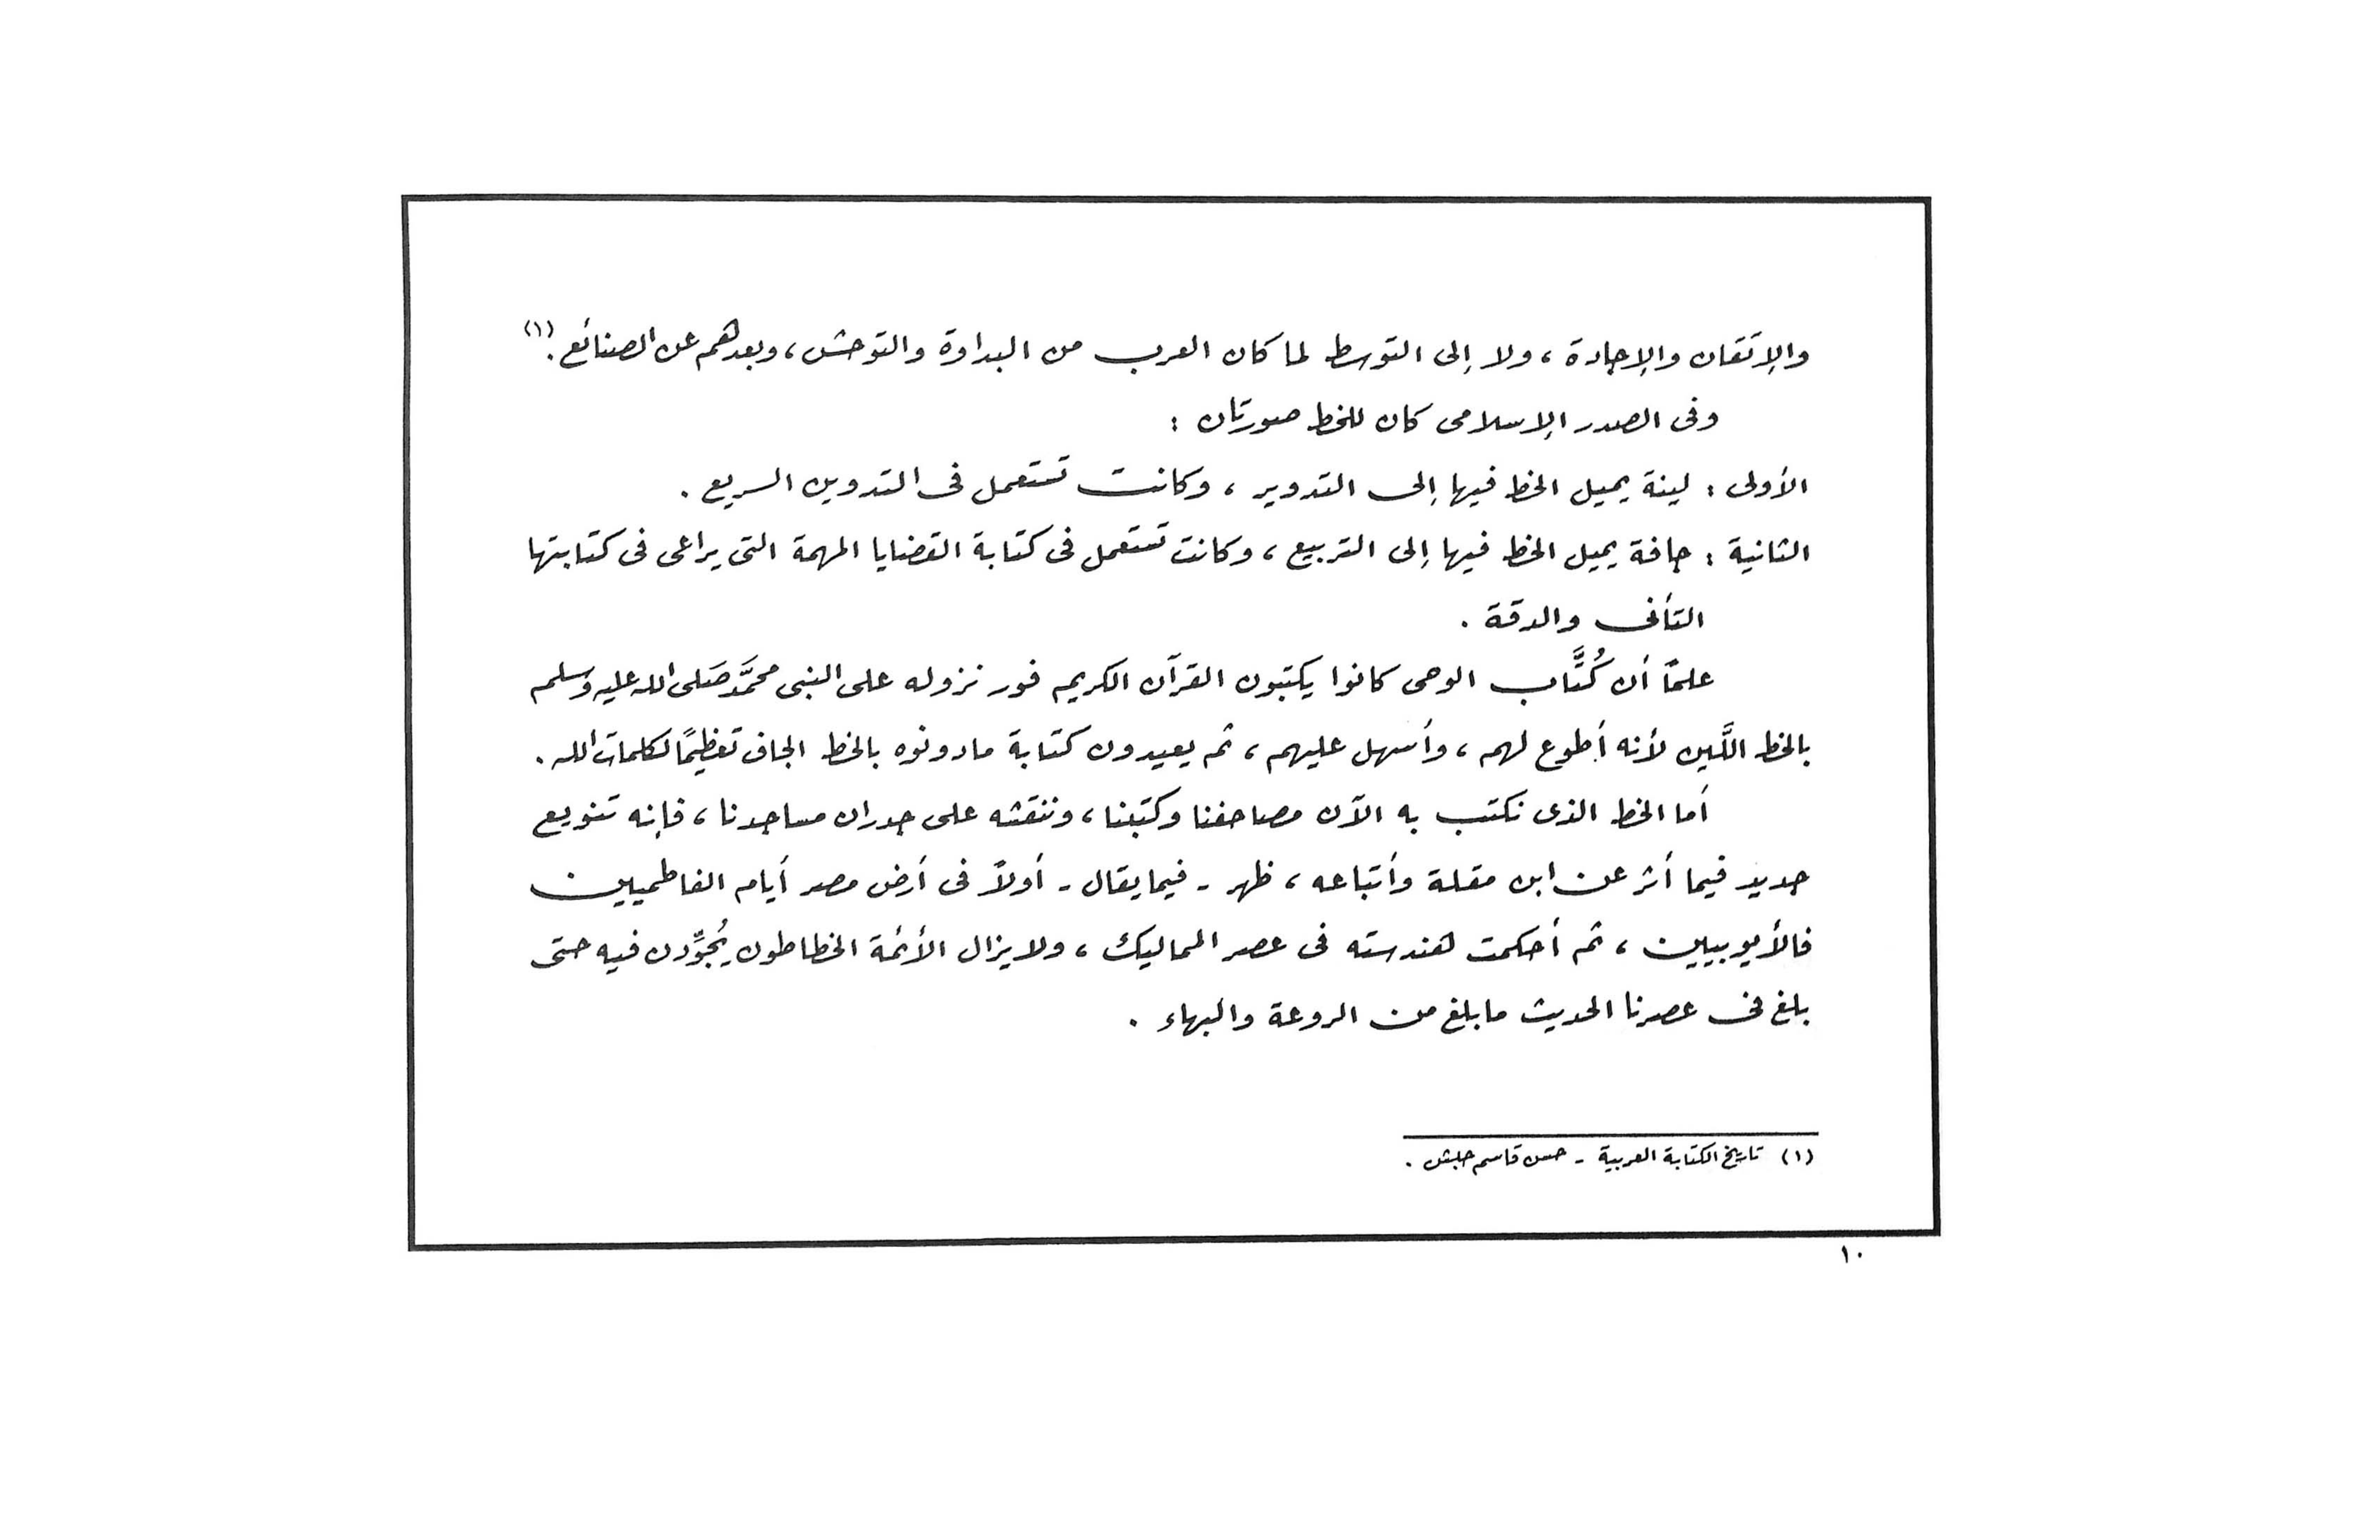 والإتقان والإجادة ، ولا إلى التوسط لما كان العرب من البداوة والتوحش ، وبعدهم عن الصنائع . (١)
وفى الصدر الإسلامى كان للخط صورتان :
الأولى : لينة يميل الخط فيها إلى التدوير ، وكانت تستعمل فى التدوين السريع .
الثانية : جافة يميل الخط فيها إلى التربيع ، وكانت تستعمل فى كتابة القضايا المهمة التى يراعى فى كتابتها
التأنى والدقة .
علمًا أن كُتَّاب الوحى كانوا يكتبون القرآن الكريم فور نزوله على النبى محمَّد صَلى الله عليه وَسلم
بالخط اللَّين لأنه أطوع لهم ، وأسهل عليهم ، ثم يعيدون كتابة مادونوه بالخط الجاف تعظيمًا لكلمات الله .
أما الخط الذى نكتب به الآن مصاحفنا وكتبنا ، وننقشه على جدران مساجدنا ، فإنه تنويع
جديد فيما أثر عن ابن مقلة وأتباعه ، ظهر - فيما يقال - أولاً فى أرض مصر أيام الفاطميين
فالأيوبيين ، ثم أحكمت هندسته فى عصر المماليك ، ولا يزال الأئمة الخطاطون يُجوِّدن فيه حتى
بلغ فى عصرنا الحديث ما بلغ من الروعة والبهاء .
(١) تاريخ الكتابة العربية - حسن قاسم حبش .
١٠